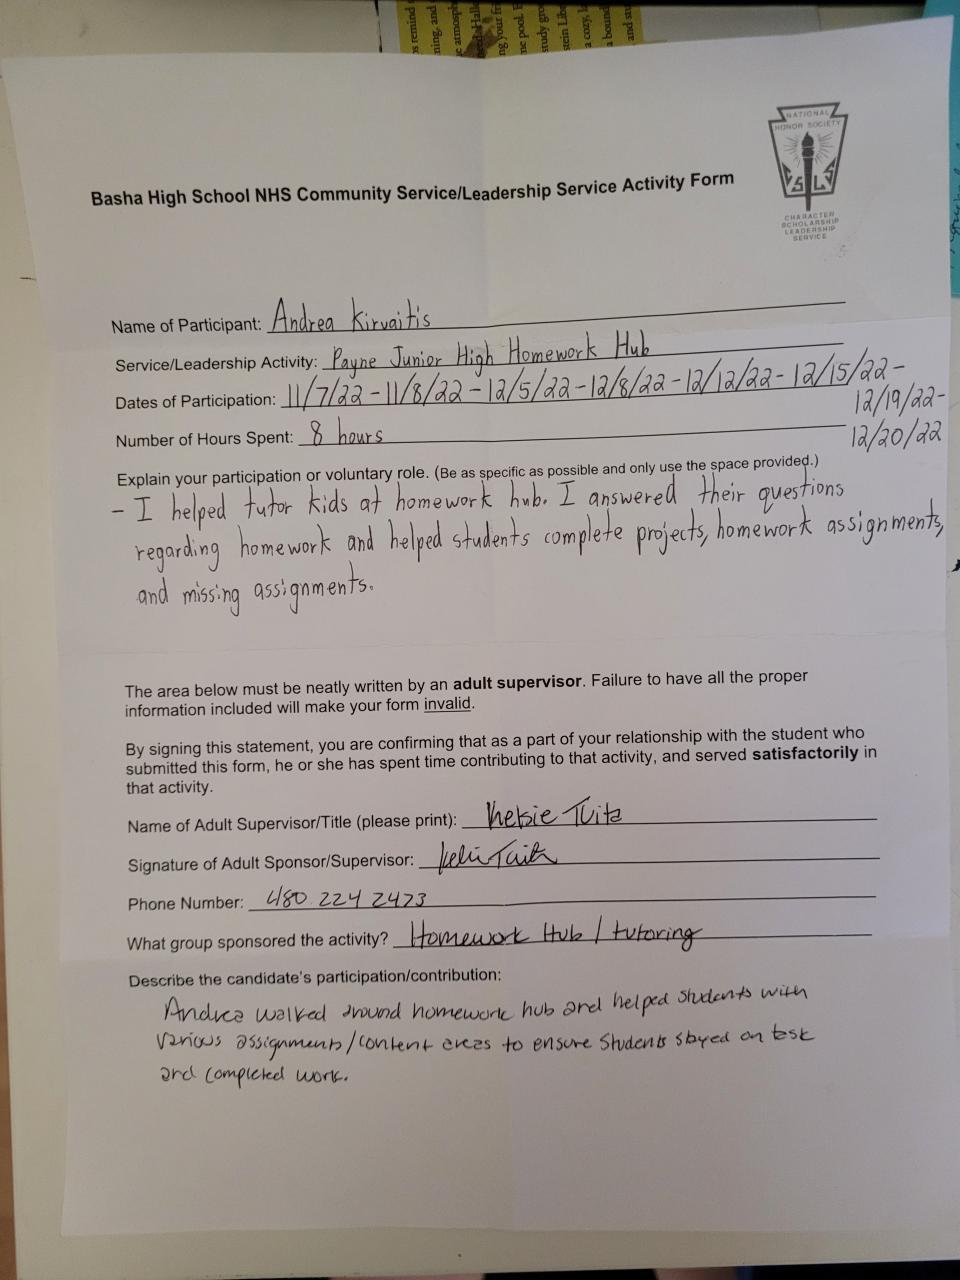 NATIONAL
HONOR SOCIETY
S L S
CHARACTER
SCHOLARSHIP
LEADERSHIP
SERVICE
Basha High School NHS Community Service/Leadership Service Activity Form
Name of Participant: Andrea Kirvaitis
Service/Leadership Activity: Payne Junior High Homework Hub
Dates of Participation: 11/7/22 - 11/8/22 - 12/5/22 - 12/8/22 - 12/12/22 - 12/15/22 -
12/19/22 -
12/20/22
Number of Hours Spent: 8 hours
Explain your participation or voluntary role. (Be as specific as possible and only use the space provided.)
- I helped tutor kids at homework hub. I answered their questions
regarding homework and helped students complete projects, homework assignments,
and missing assignments.
The area below must be neatly written by an adult supervisor. Failure to have all the proper
information included will make your form invalid.
By signing this statement, you are confirming that as a part of your relationship with the student who
submitted this form, he or she has spent time contributing to that activity, and served satisfactorily in
that activity.
Name of Adult Supervisor/Title (please print):
Signature of Adult Sponsor/Supervisor:
Phone Number: 480 224 2473
What group sponsored the activity? Homework Hub / tutoring
Describe the candidate's participation/contribution:
Andrea walked around homework hub and helped students with
various assignments/content areas to ensure students stayed on task
and completed work.